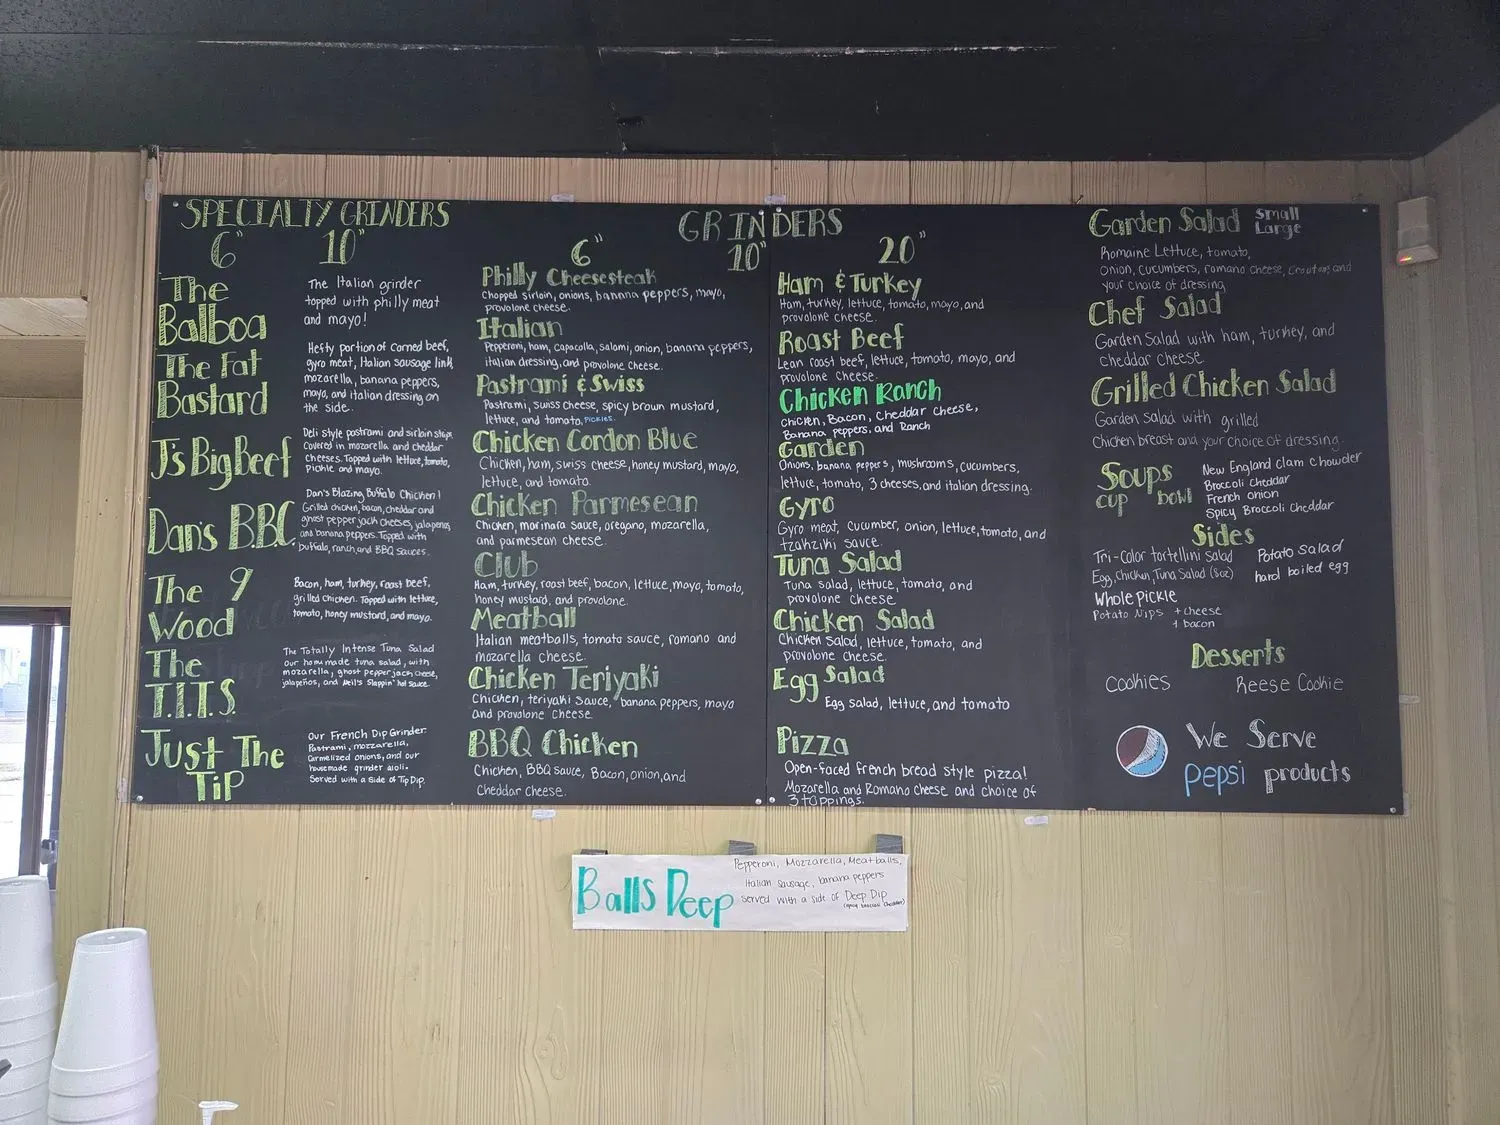 SPECIALTY GRINDERS
6" 10"
The
Balboa
The Italian grinder
topped with philly meat
and mayo!
The Fat
Bastard
Hefty portion of corned beef,
gyro meat, Italian sausage link,
mozarella, banana peppers,
mayo, and italian dressing on
the side.
J's Big Beef
Deli style pastrami and sirloin steak
covered in mozarella and cheddar
cheeses. Topped with lettuce, tomato,
pickle and mayo.
Dan's B.B.C.
Dan's Blazing Buffalo Chicken!
Grilled chicken, bacon, cheddar and
ghost pepper jack cheeses, jalapeños
and banana peppers. Topped with
buffalo, ranch, and BBQ sauces.
The 9
Wood
Bacon, ham, turkey, roast beef,
grilled chicken. Topped with lettuce,
tomato, honey mustard, and mayo.
The
T.I.T.S.
The Totally Intense Tuna Salad
Our homemade tuna salad, with
mozarella, ghost pepper jack cheese,
jalapeños, and Neil's Slappin' hot sauce.
Just The
Tip
Our French Dip Grinder
Pastrami, mozzarella,
Carmelized onions, and our
housemade grinder aioli.
Served with a side of Tip Dip.
GRINDERS
6" 10" 20"
Philly Cheesesteak
Chopped sirloin, onions, banana peppers, mayo,
provolone cheese.
Italian
Pepperoni, ham, capacolla, salami, onion, banana peppers,
italian dressing, and provolone cheese.
Pastrami & Swiss
Pastrami, swiss cheese, spicy brown mustard,
lettuce, and tomato, PICKLES.
Chicken Cordon Blue
Chicken, ham, swiss cheese, honey mustard, mayo,
lettuce, and tomato.
Chicken Parmesean
Chicken, marinara sauce, oregano, mozarella,
and parmesean cheese.
Club
Ham, turkey, roast beef, bacon, lettuce, mayo, tomato,
honey mustard, and provolone.
Meatball
Italian meatballs, tomato sauce, romano and
mozarella cheese.
Chicken Teriyaki
Chicken, teriyaki sauce, banana peppers, mayo
and provolone cheese.
BBQ Chicken
Chicken, BBQ sauce, Bacon, onion, and
Cheddar cheese.
Ham & Turkey
Ham, turkey, lettuce, tomato, mayo, and
provolone cheese.
Roast Beef
Lean roast beef, lettuce, tomato, mayo, and
provolone cheese.
Chicken Ranch
Chicken, Bacon, Cheddar Cheese,
Banana peppers, and Ranch
Garden
Onions, banana peppers, mushrooms, cucumbers,
lettuce, tomato, 3 cheeses, and italian dressing.
Gyro
Gyro meat, cucumber, onion, lettuce, tomato, and
tzahziki sauce.
Tuna Salad
Tuna salad, lettuce, tomato, and
provolone cheese.
Chicken Salad
Chicken salad, lettuce, tomato, and
provolone cheese.
Egg Salad
Egg salad, lettuce, and tomato
Pizza
Open-faced french bread style pizza!
Mozarella and Romano cheese and choice of
3 toppings.
Garden Salad Small
Large
Romaine Lettuce, tomato,
onion, cucumbers, romano cheese, croutons and
your choice of dressing
Chef Salad
Garden Salad with ham, turkey, and
cheddar cheese
Grilled Chicken Salad
Garden salad with grilled
Chicken breast and your choice of dressing.
Soups
cup bowl
New England Clam Chowder
Broccoli Cheddar
French Onion
Spicy Broccoli Cheddar
Sides
Tri-color tortellini salad
Egg, Chicken, Tuna Salad (8oz)
Whole Pickle
Potato Nips + cheese
+ bacon
Potato Salad
hard boiled egg
Desserts
Cookies Reese Cookie
We Serve
pepsi products
Balls Deep
Pepperoni, Mozzarella, Meatballs,
Italian Sausage, banana peppers
served with a side of Deep Dip
(spicy broccoli cheddar)